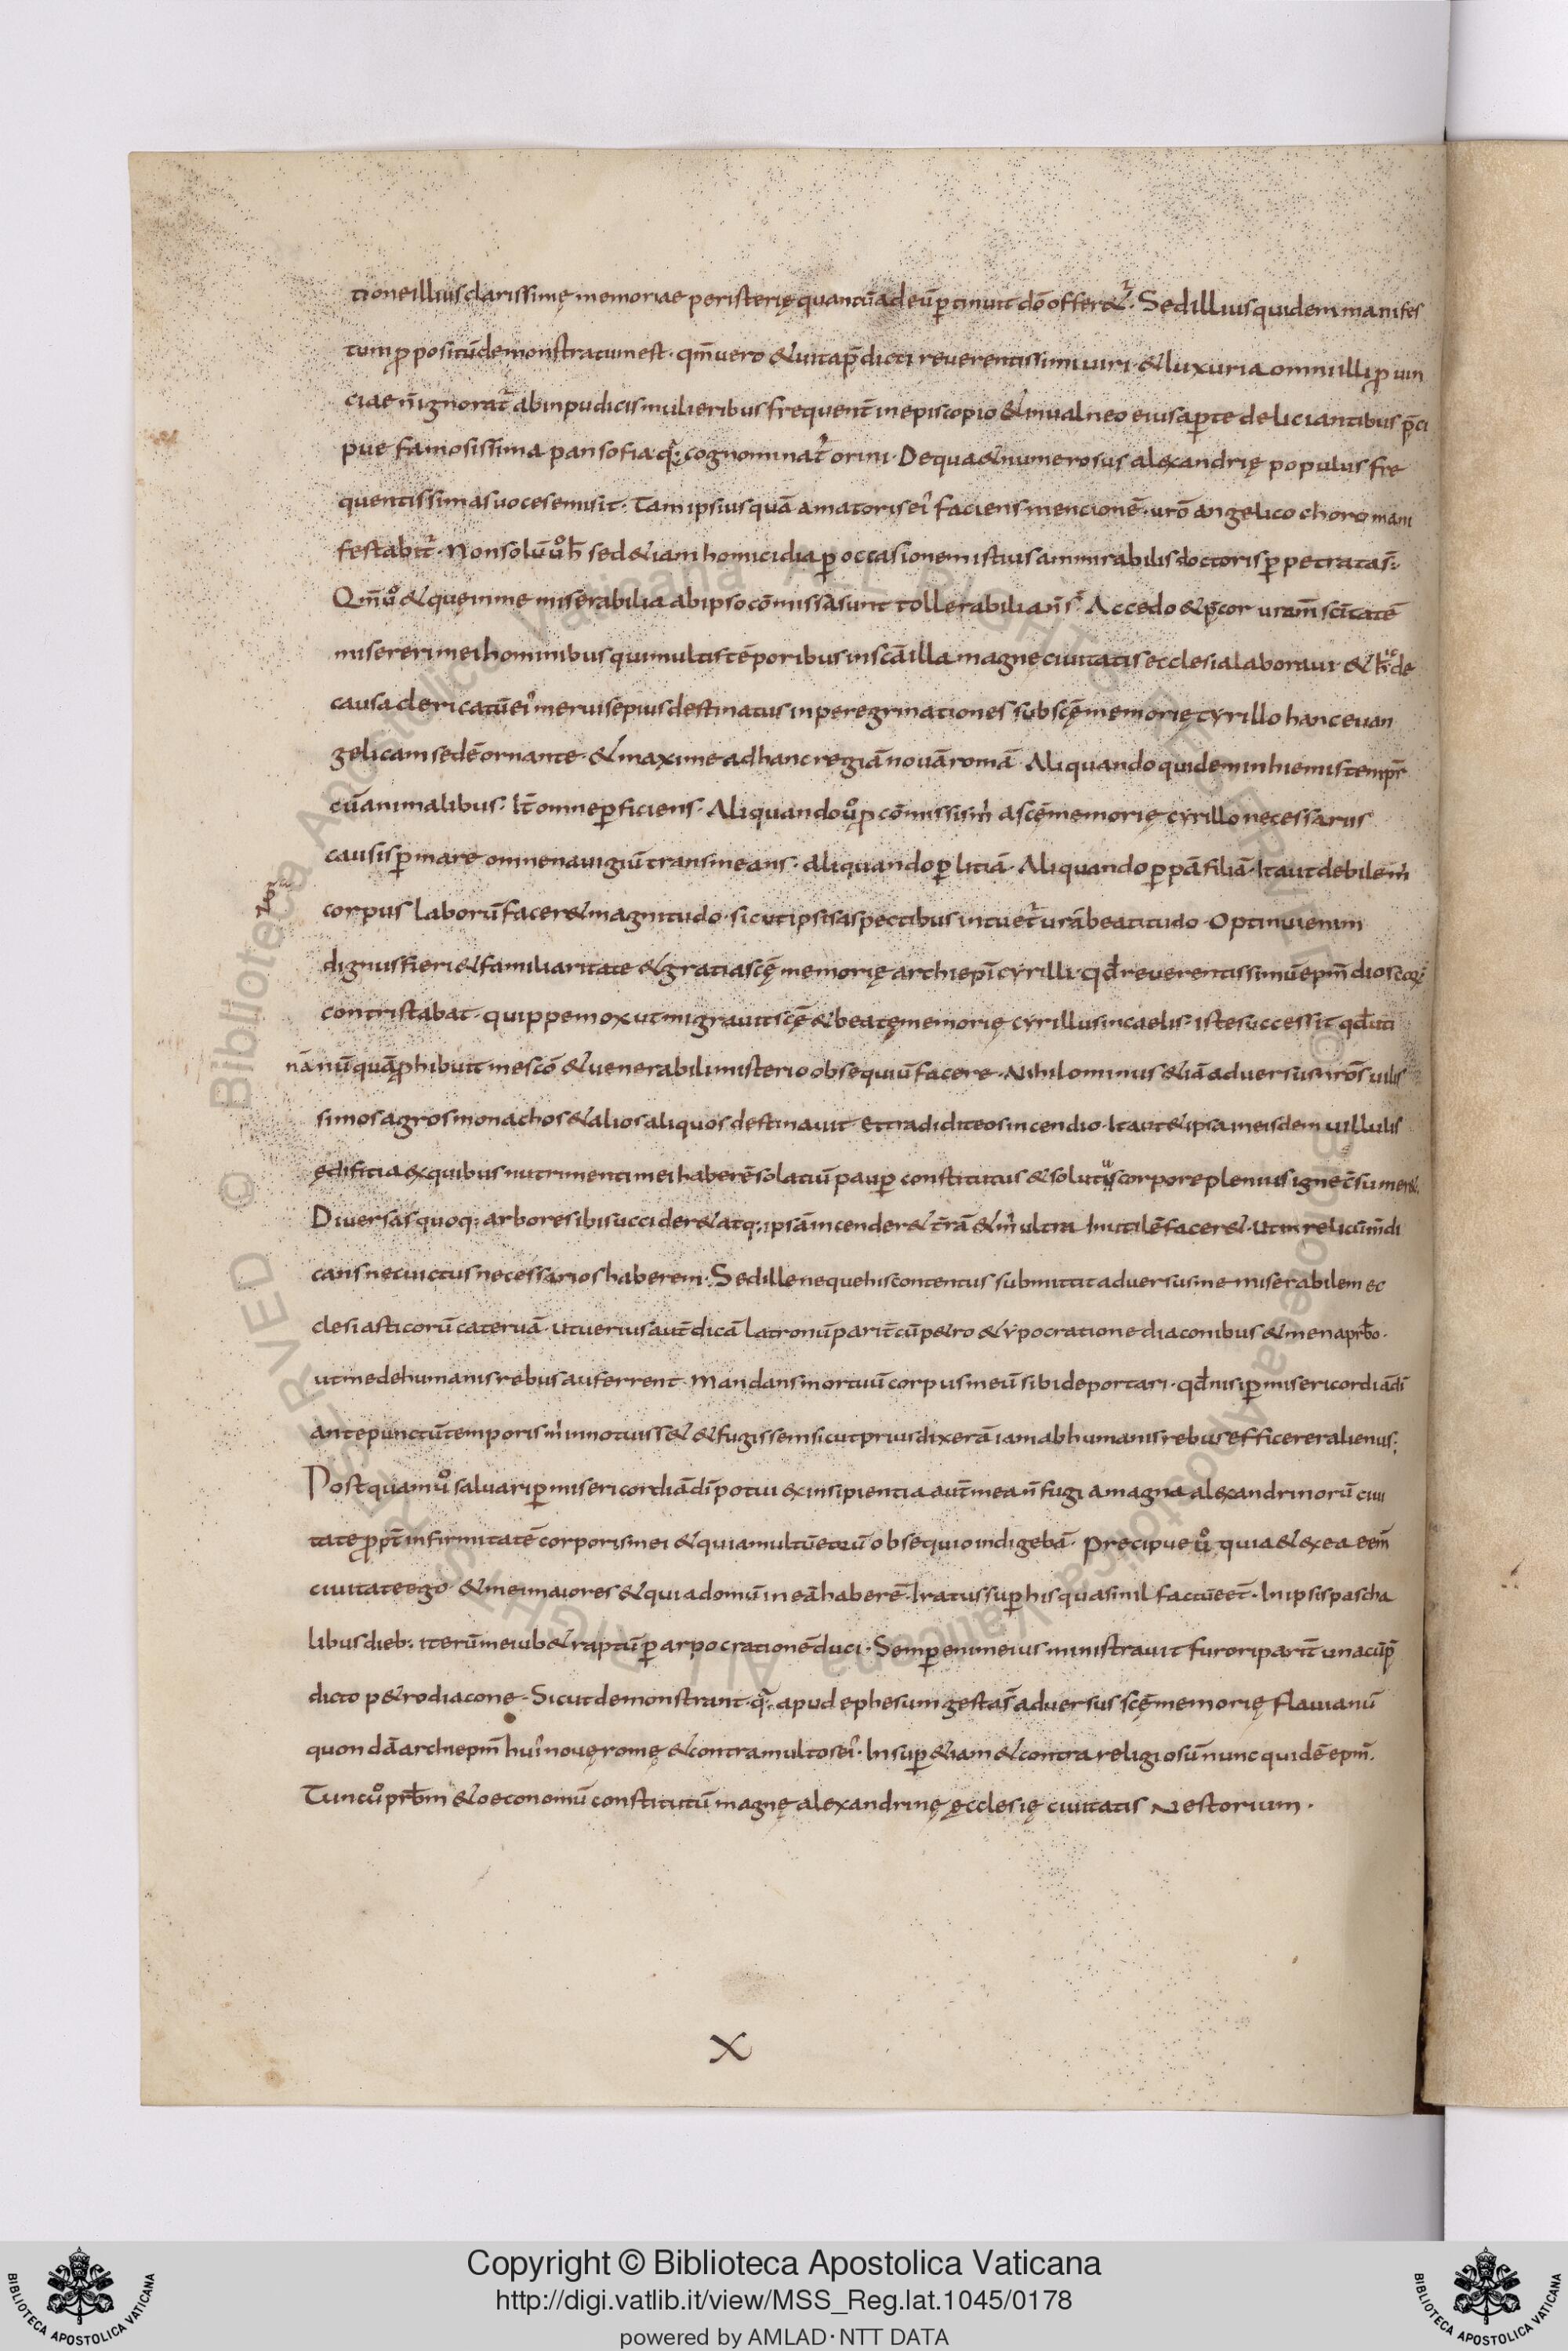 tione illius clarissimę memoriae peristerię quantū ad eū p̱tinuit dō offer&ͬ· Sed illius quidem manifes
tum ꝓpositū demonstratum est· qm̄ vero & uita p̄dicti reverentissimi uiri· & luxuria omni illi ꝓuin
ciae n̄ ignorat᷑ ab inpudicis mulieribus frequent̄ in episcopio & in ualneo eius aꝑte deliciantibus p̄ci
pue famosissima pansofia q̨ cognominat᷑ orini· De qua & numerosus alexandrię populus fre
quentissimas uoces emisit· Tam ipsius quā amatoris ei᷒ faciens mencionē· urō angelico choro mani
festabit᷑· Non solū ů h̄ sed &iam homicidia ꝑ occasionem istius ammirabilis doctoris ꝑpetrata s̄:·
Qm̄ ů & quę in me miserabilia ab ipso cōmissa sunt tollerabilia n̄ s̄· Accedo & p̄cor uram̄ sc̄itatē
misereri mei hominibus qui multis tēporibus in sc̄a illa magne ciuitatis ecclesia laboraui· & h̄ de
causa clericatū ei᷒ merui sepius destinatus in peregrinationes sub sc̄ę memorię cyrillo hanc euan
gelicam sedē ornante· & maxime ad hanc regiā nouā romā· Aliquando quidem in hiemis tempr̄
cū animalibus· It̄ omne ꝑficiens· Aliquando ů ꝓ cōmissis m̊ a sc̄ę memorię cyrillo necessariis
causis ꝑ mare omne nauigiū transmeans· aliquando ꝑ litiā· Aliquando ꝑ pāfiliā· Ita ut debile m̊
corpus laborū facer& magnitudo· sicut ipsis aspectibus intuet᷑ urā beatitudo· Optinui enim
dignus fieri & familiaritate & gratia sc̄ę memorię archiepī cyrilli· qd̄ reverentissimū epm̄ diosc̄orū
contristabat· quippe mox ut migrauit sc̄ę & beatę memorię cyrillus in caelis· iste successit qd̄ uti
nā nūquā ꝓhibuit me sc̄o & uenerabili misterio obsequiū facere· Nihilominus &iā adversus nrōs uilis
simos agros monachos & alios aliquos destinauit· Et tradidit eos incendio· Ita ut & ipsa in eisdem uillulis
ędifitia ex quibus nutrimenti mei haberē solatiū pauꝑ constitutus & solutus corpore plenius igne c̄sumer&·
Diversas quoq; arbores ibi succider& atq; ipsā incender& t̄rā & m̊ ultra Inutilē facer&· ut in relicū m̄di
cans nec uictus necessarios haberem· Sed ille neque his contentus submittit adversus me miserabilem ec
clesiasticorū catervā· ut verius aut̄ dicā latronū parit̄ cū p&ro & ypocratione diaconibus & mena prb̄o·
ut me de humanis rebus auferrent· Mandans mortuū corpus meū sibi deportari· qd̄ nisi ꝑ misericordiā dī
ante punctū temporis m̊ innotuiss& & fugissem sicut prius dixerā iam ab humanis rebus efficerer alienus;
Postquam ů salvari ꝑ misericordiā dī potui ex insipientia aut̄ mea n̄ fugi a magna alexandrinorū ciui
tate ꝓpt̄ infirmitatē corporis mei & quia multū eorū obsequio indigebā· Precipue ů quia & ex ea eem̄
ciuitate ego· & mei maiores & quia domū in eā haberē· Iratus suꝑ his quasi nil factū eēt· In ipsis pascha
libus dieb; iterū me iub& raptū ꝑ arpocrationē duci· Semꝑ enim eius ministrauit furori parit̄ una cū p̄
dicto p&ro diacone· Sicut demonstrant· q̨ apud ephesum gesta s̄ adversus sc̄ę memorię flauianū
quondā archiepm̄ hui᷒ nouę romę & contra multos ei᷒· Insuꝑ &iam & contra religiosū nunc quidē epm̄·
Tunc ů prb̄m & oeconomū constitutū magnę alexandrinę ęcclesię ciuitatis Nestorium·
X
Copyright © Biblioteca Apostolica Vaticana
http://digi.vatlib.it/view/MSS_Reg.lat.1045/0178
powered by AMLAD·NTT DATA